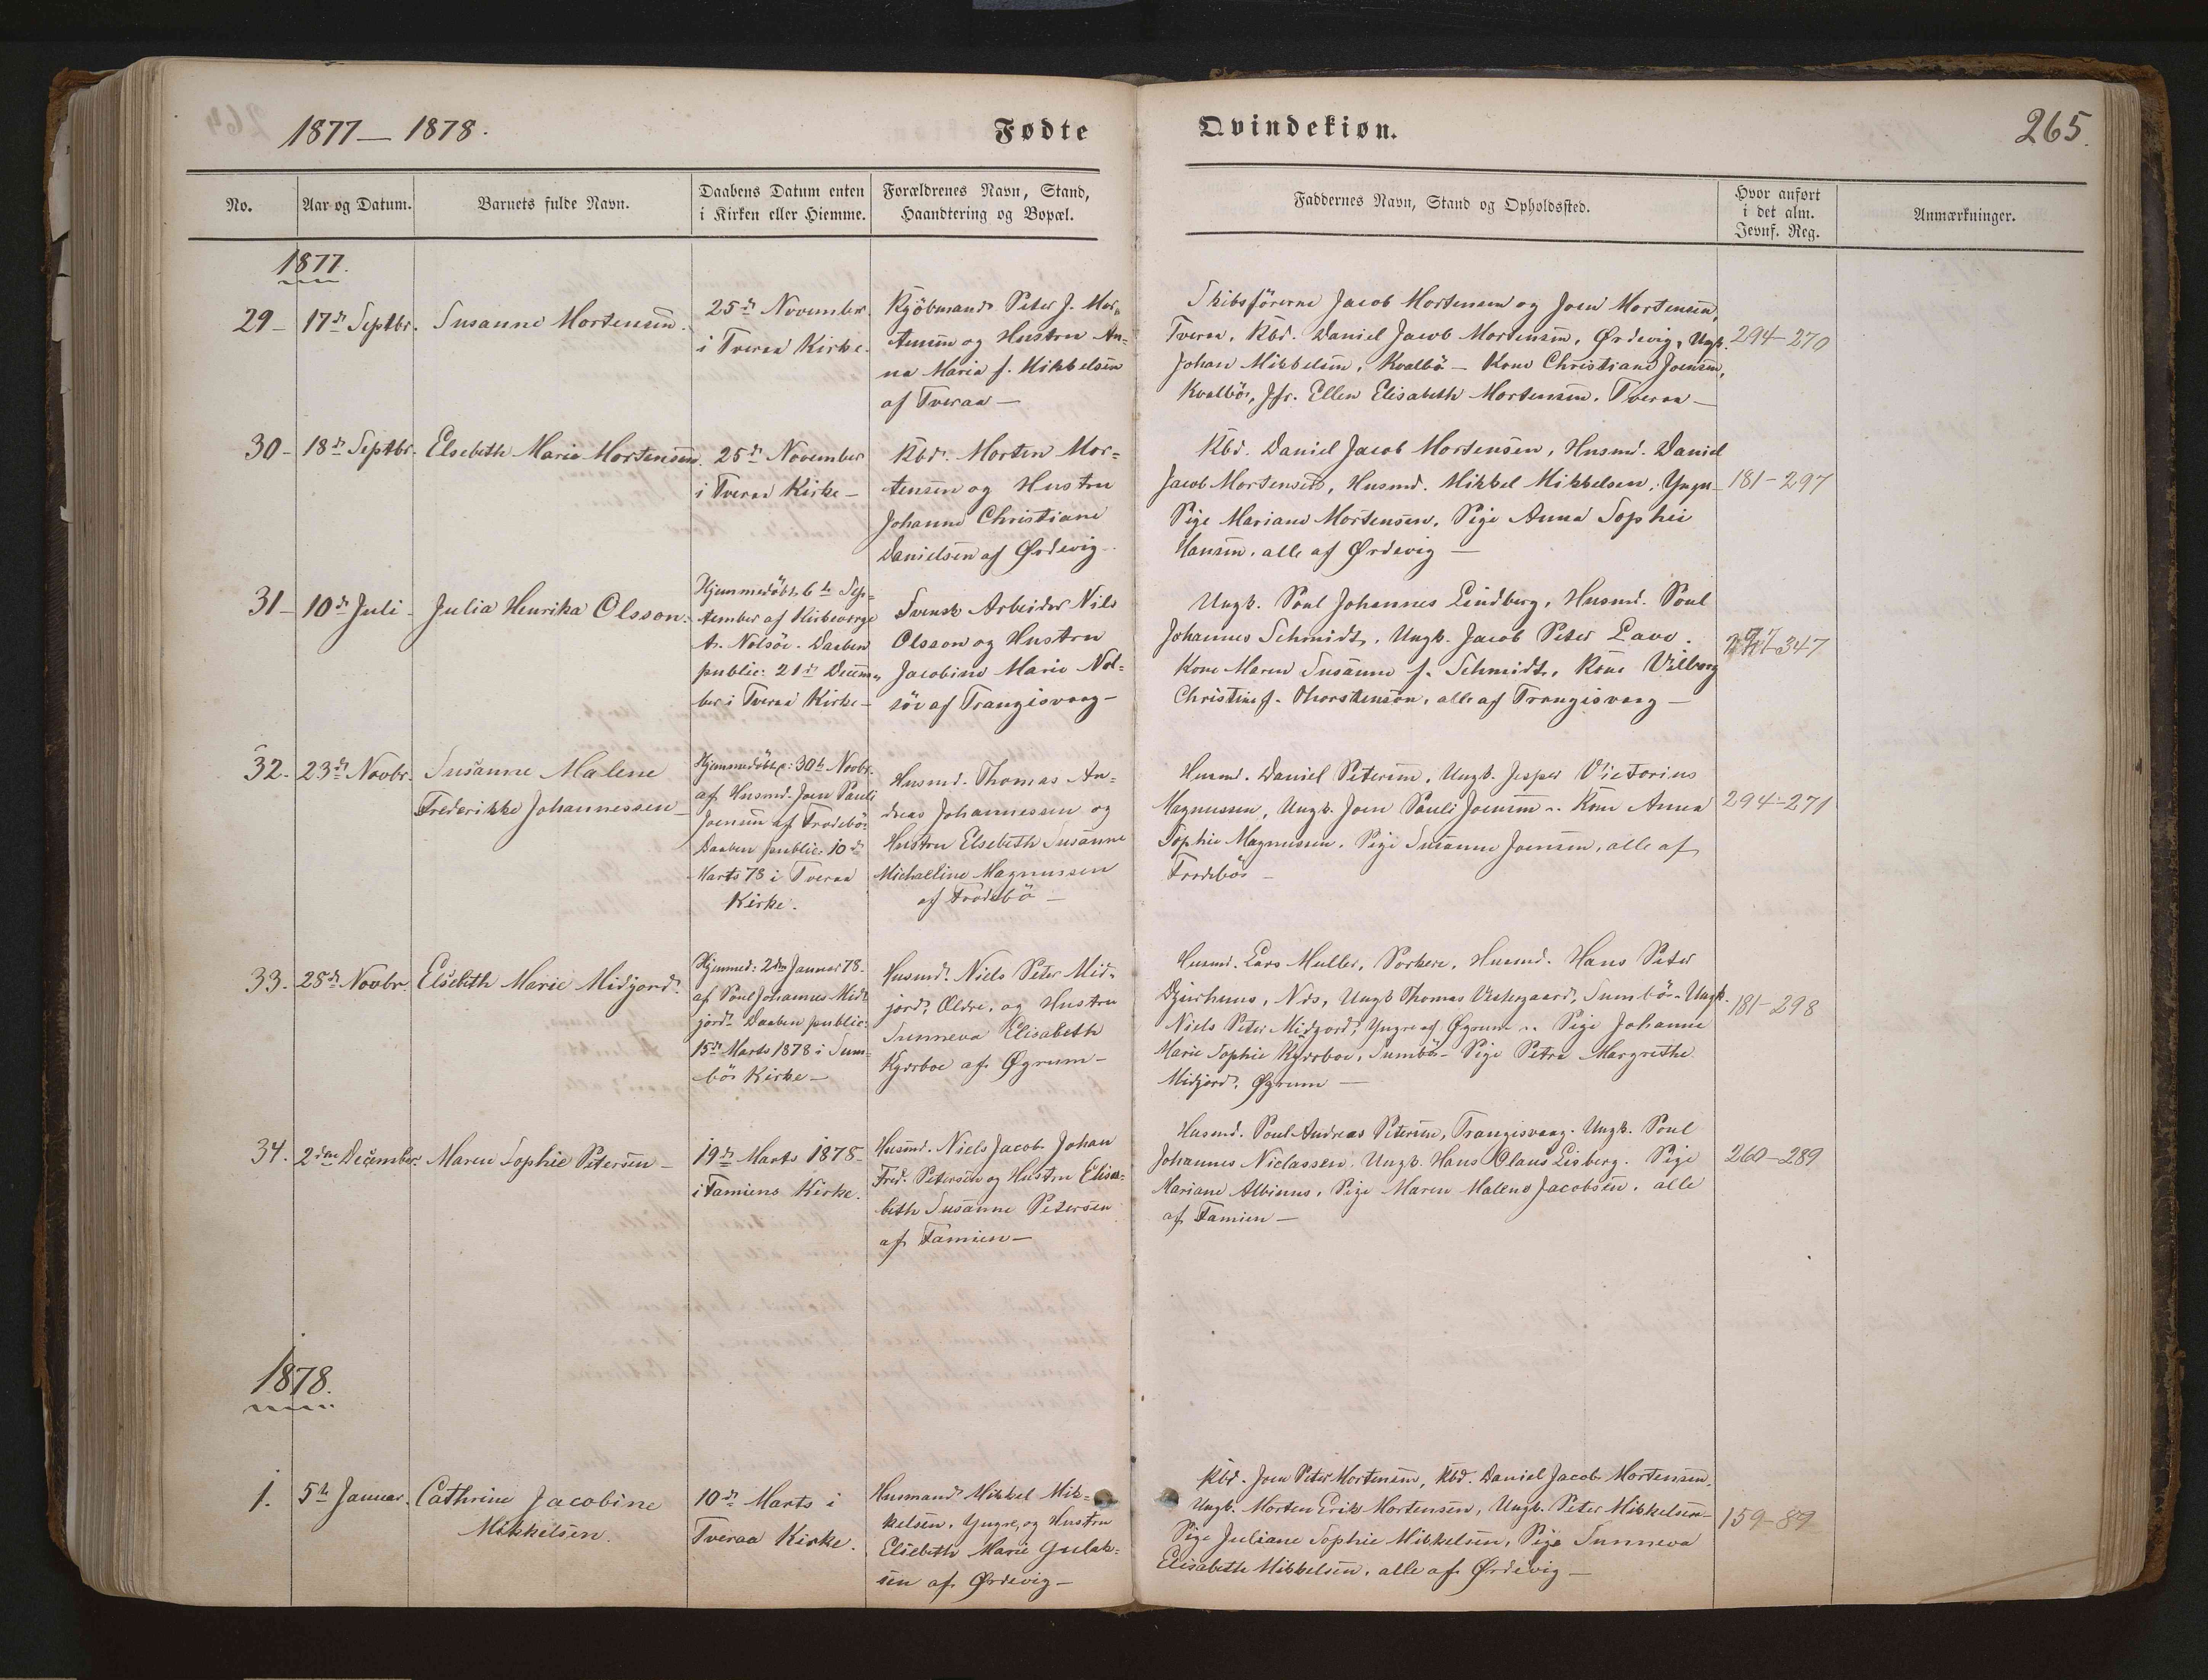 1877 — 1878.
Fødte
Qvindekiøn.
265.
No.
Aar og Datum.
Barnets fulde Navn.
Daabens Datum enten
i Kirken eller Hiemme.
Forældrenes Navn, Stand,
Haandtering og Bopæl.
Faddernes Navn, Stand og Opholdssted.
Hvor anført
i det alm.
Jevnf. Reg.
Anmærkninger.
1877.
29 –
17d Septbr.
Susanne Mortensen.
25d November
i Tveraa Kirke.
Kjöbmand Peter J. Mor-
tensen og Hustru An-
na Maria f. Mikkelsen
af Tveraa —
Skibsförerne Jacob Mortensen og Joen Mortensen,
Tveraa, Kbd. Daniel Jacob Mortensen, Ørdevig, Ungk.
Johan Mikkelsen, Kvalbö – Kone Christiane Joensen,
Kvalbö, Jfr. Ellen Elisabeth Mortensen, Tveraa —
294–270
30 –
18d Septbr.
Elsebeth Marie Mortensen.
25d November
i Tveraa Kirke –
Kbd. Morten Mor=
tensen og Hustru
Johanne Christiane
Danielsen af Ørdevig.
Kbd. Daniel Jacob Mortensen, Husmd. Daniel
Jacob Mortensen, Husmd. Mikkel Mikkelsen, Yngre
Pige Mariane Mortensen, Pige Anna Sophie
Hansen, alle af Ørdevig —
181–297
31 –
10d Juli –
Julia Henrika Olsson.
Hjemmedöbt 6t Sep=
tember af Kirkeværge
Nolsöe. Daaben
public: 21d Decem-
ber i Tveraa Kirke –
Svensk Arbeider Nils
Olsson og Hustru
Jacobine Marie Nol=
söe af Trangisvaag –
Ungk. Poul Johannes Lindberg, Husmd. Poul
Johannes Schmidt, Ungk. Jacob Peter Lave.
Kone Maren Susanne f. Schmidt, Kone Vilborg
Christine f. Thorstenson, alle af Trangisvaag –
347
32.
23d Novbr.
Susanne Malene
Frederikke Johannessen –
Hjemmedöbt: 30t Novbr.
af Husmd. Joen Pauli
Joensen af Frodebö.
Daaben public: 10d
Marts 78 i Tveraa
Kirke.
Husmd. Thomas An=
dreas Johannessen og
Hustru Elsebeth Susanne
Michaeline Magnussen
af Frodebö –
Husmd. Daniel Petersen, Ungk. Jesper Victorius
Magnussen, Ungk. Joen Pauli Joensen – Kone Anna
Sophie Magnussen, Pige Susanne Joensen, alle af
Frodebö –
294–271
33.
28d Novbr.
Elsebeth Marie Midjord.
Hjemmed: 2den Januar 78.
af Poul Johannes Mid=
jord. Daaben public:
15d Marts 1878 i Sum=
bö Kirke –
Husmd. Niels Peter Mid-
jord, Ældre, og Hustru
Sunneva Elisabeth
Kjærboe af Øgrum –
Husmd. Lars Muller, Porkere, Husmd. Hans Peter
Djurhuus, Næs, Ungk Thomas Vestergaard, Sumbö – Ungk.
Niels Peter Midjord, Yngre af Øgrum – Pige Johanne
Marie Sophie Kjærboe, Sumbö – Pige Petra Margrethe
Midjord, Øgrum —
181–298
34.
2den December.
Maren Sophie Petersen –
19d Marts 1878
i Famiens Kirke.
Husmd. Niels Jacob Johan
Fred. Petersen og Hustru Elisa=
beth Susanne Petersen
af Famien –
Husmd. Poul Andreas Petersen, Trangisvaag. Ungk. Poul
Johannes Niclassen, Ungk. Hans Olaus Lisberg. Pige
Mariane Albinus, Pige Maren Malene Jacobsen, alle
af Famien –
260–289
1878.
1.
5t Januar.
Cathrine Jacobine
Mikkelsen.
10d Marts i
Tveraa Kirke.
Husmand Mikkel Mik=
kelsen, Yngre, og Hustru
Elsebeth Marie Gulak=
sen af Ørdevig –
Kbd. Joen Peter Mortensen, Kbd. Daniel Jacob Mortensen,
Ungk. Morten Erik Mortensen, Ungk. Peter Mikkelsen –
Pige Juliane Sophie Mikkelsen, Pige Sunneva
Elisabeth Mikkelsen, alle af Ørdevig –
159–89